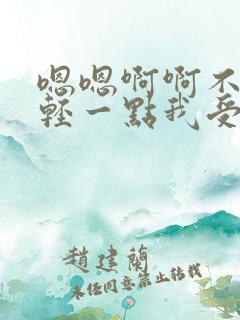 嗯嗯啊啊不
輕一點我受
趙建蘭
未经同意禁止转载